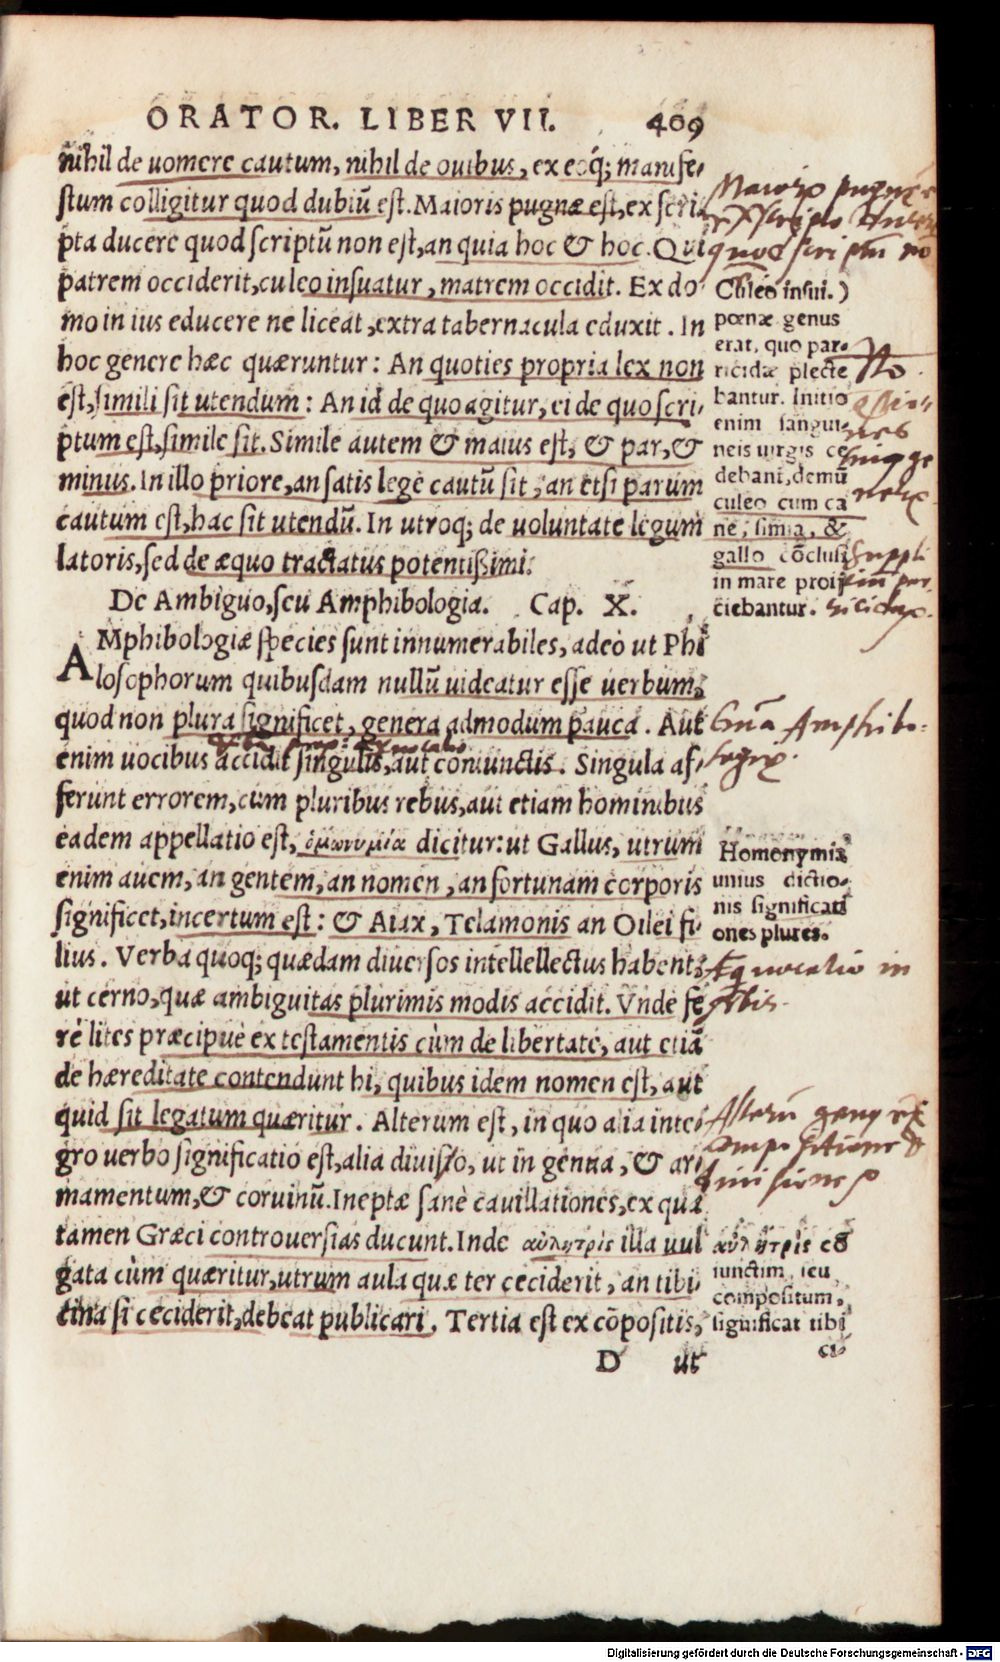 ORATOR. LIBER VII. 409
nihil de uomere cautum, nihil de ouibus, ex eoq́; manife-
stum colligitur quod dubiū est. Maioris pugnæ est, ex scri-
pta ducere quod scriptū non est, an quia hoc & hoc. Qui
patrem occiderit, culeo insuatur, matrem occidit. Ex do-
mo in ius educere ne liceat, extra tabernacula eduxit. In
hoc genere hæc quæruntur: An quoties propria lex non
est, simili sit utendum: An id de quo agitur, ei de quo scri-
ptum est, simile sit. Simile autem & maius est, & par, &
minus. In illo priore, an satis lege cautū sit, an etsi parum
cautum est, hac sit utendū. In utroq; de uoluntate legum
latoris, sed de æquo tractatus potentißimi.
De Ambiguo, seu Amphibologia. Cap. X.
AMphibologiæ species sunt innumerabiles, adeò ut Phi
losophorum quibusdam nullū uideatur esse uerbum,
quod non plura significet, genera admodum pauca. Aut
enim uocibus accidit singulis, aut coniunctis. Singula af-
ferunt errorem, cùm pluribus rebus, aut etiam hominibus
eadem appellatio est, ὁμωνυμία dicitur: ut Gallus, utrum
enim auem, an gentem, an nomen, an fortunam corporis
significet, incertum est: & Aiax, Telamonis an Oilei fi-
lius. Verba quoq; quædam diuersos intellellectus habent:
ut cerno, quæ ambiguitas plurimis modis accidit. Vnde fe
rè lites præcipuè ex testamentis cùm de libertate, aut etiā
de hæreditate contendunt hi, quibus idem nomen est, aut
quid sit legatum quæritur. Alterum est, in quo alia inte-
gro uerbo significatio est, alia diuiso, ut in genua, & ar-
mamentum, & coruinū. Ineptæ sanè cauillationes, ex qua
tamen Græci controuersias ducunt. Inde αὐλητρὶς illa uul
gata cùm quæritur, utrum aula quæ ter ceciderit, an tibi-
cina si ceciderit, debeat publicari. Tertia est ex cōpositis,
D ut
Maioris pugnæ
ex scripto ducere
quod scriptū no
Culeo insui.)
pœnæ genus
erat, quo par-
ricidæ plecte
bantur. Initio
enim sangui-
neis uirgis ce
debant, demū
culeo cum ca
ne, simia, &
gallo cōclusi
in mare proij
ciebantur.
Suppli
ciū par
ricidaꝝ.
Gn̄a Amphibo-
logiæ.
Homonymia
unius dictio-
nis significati
ones plures.
Æquocatio in
Alterū genus ex
compositione &
diuisione
αὐλητρὶς cō
iunctim, seu
compositum,
significat tibi
ci-
Digitalisierung gefördert durch die Deutsche Forschungsgemeinschaft - DFG